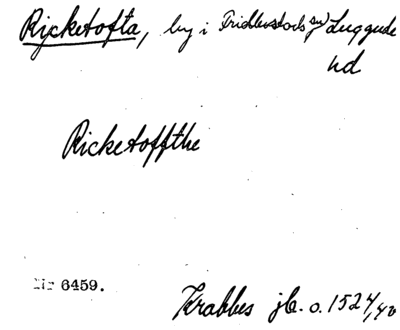 Rycketofta, by i Fridlevstads sn Luggude
hd
Ricketoffthe
Nr 6459.
Krabbes jb. o. 1524/40